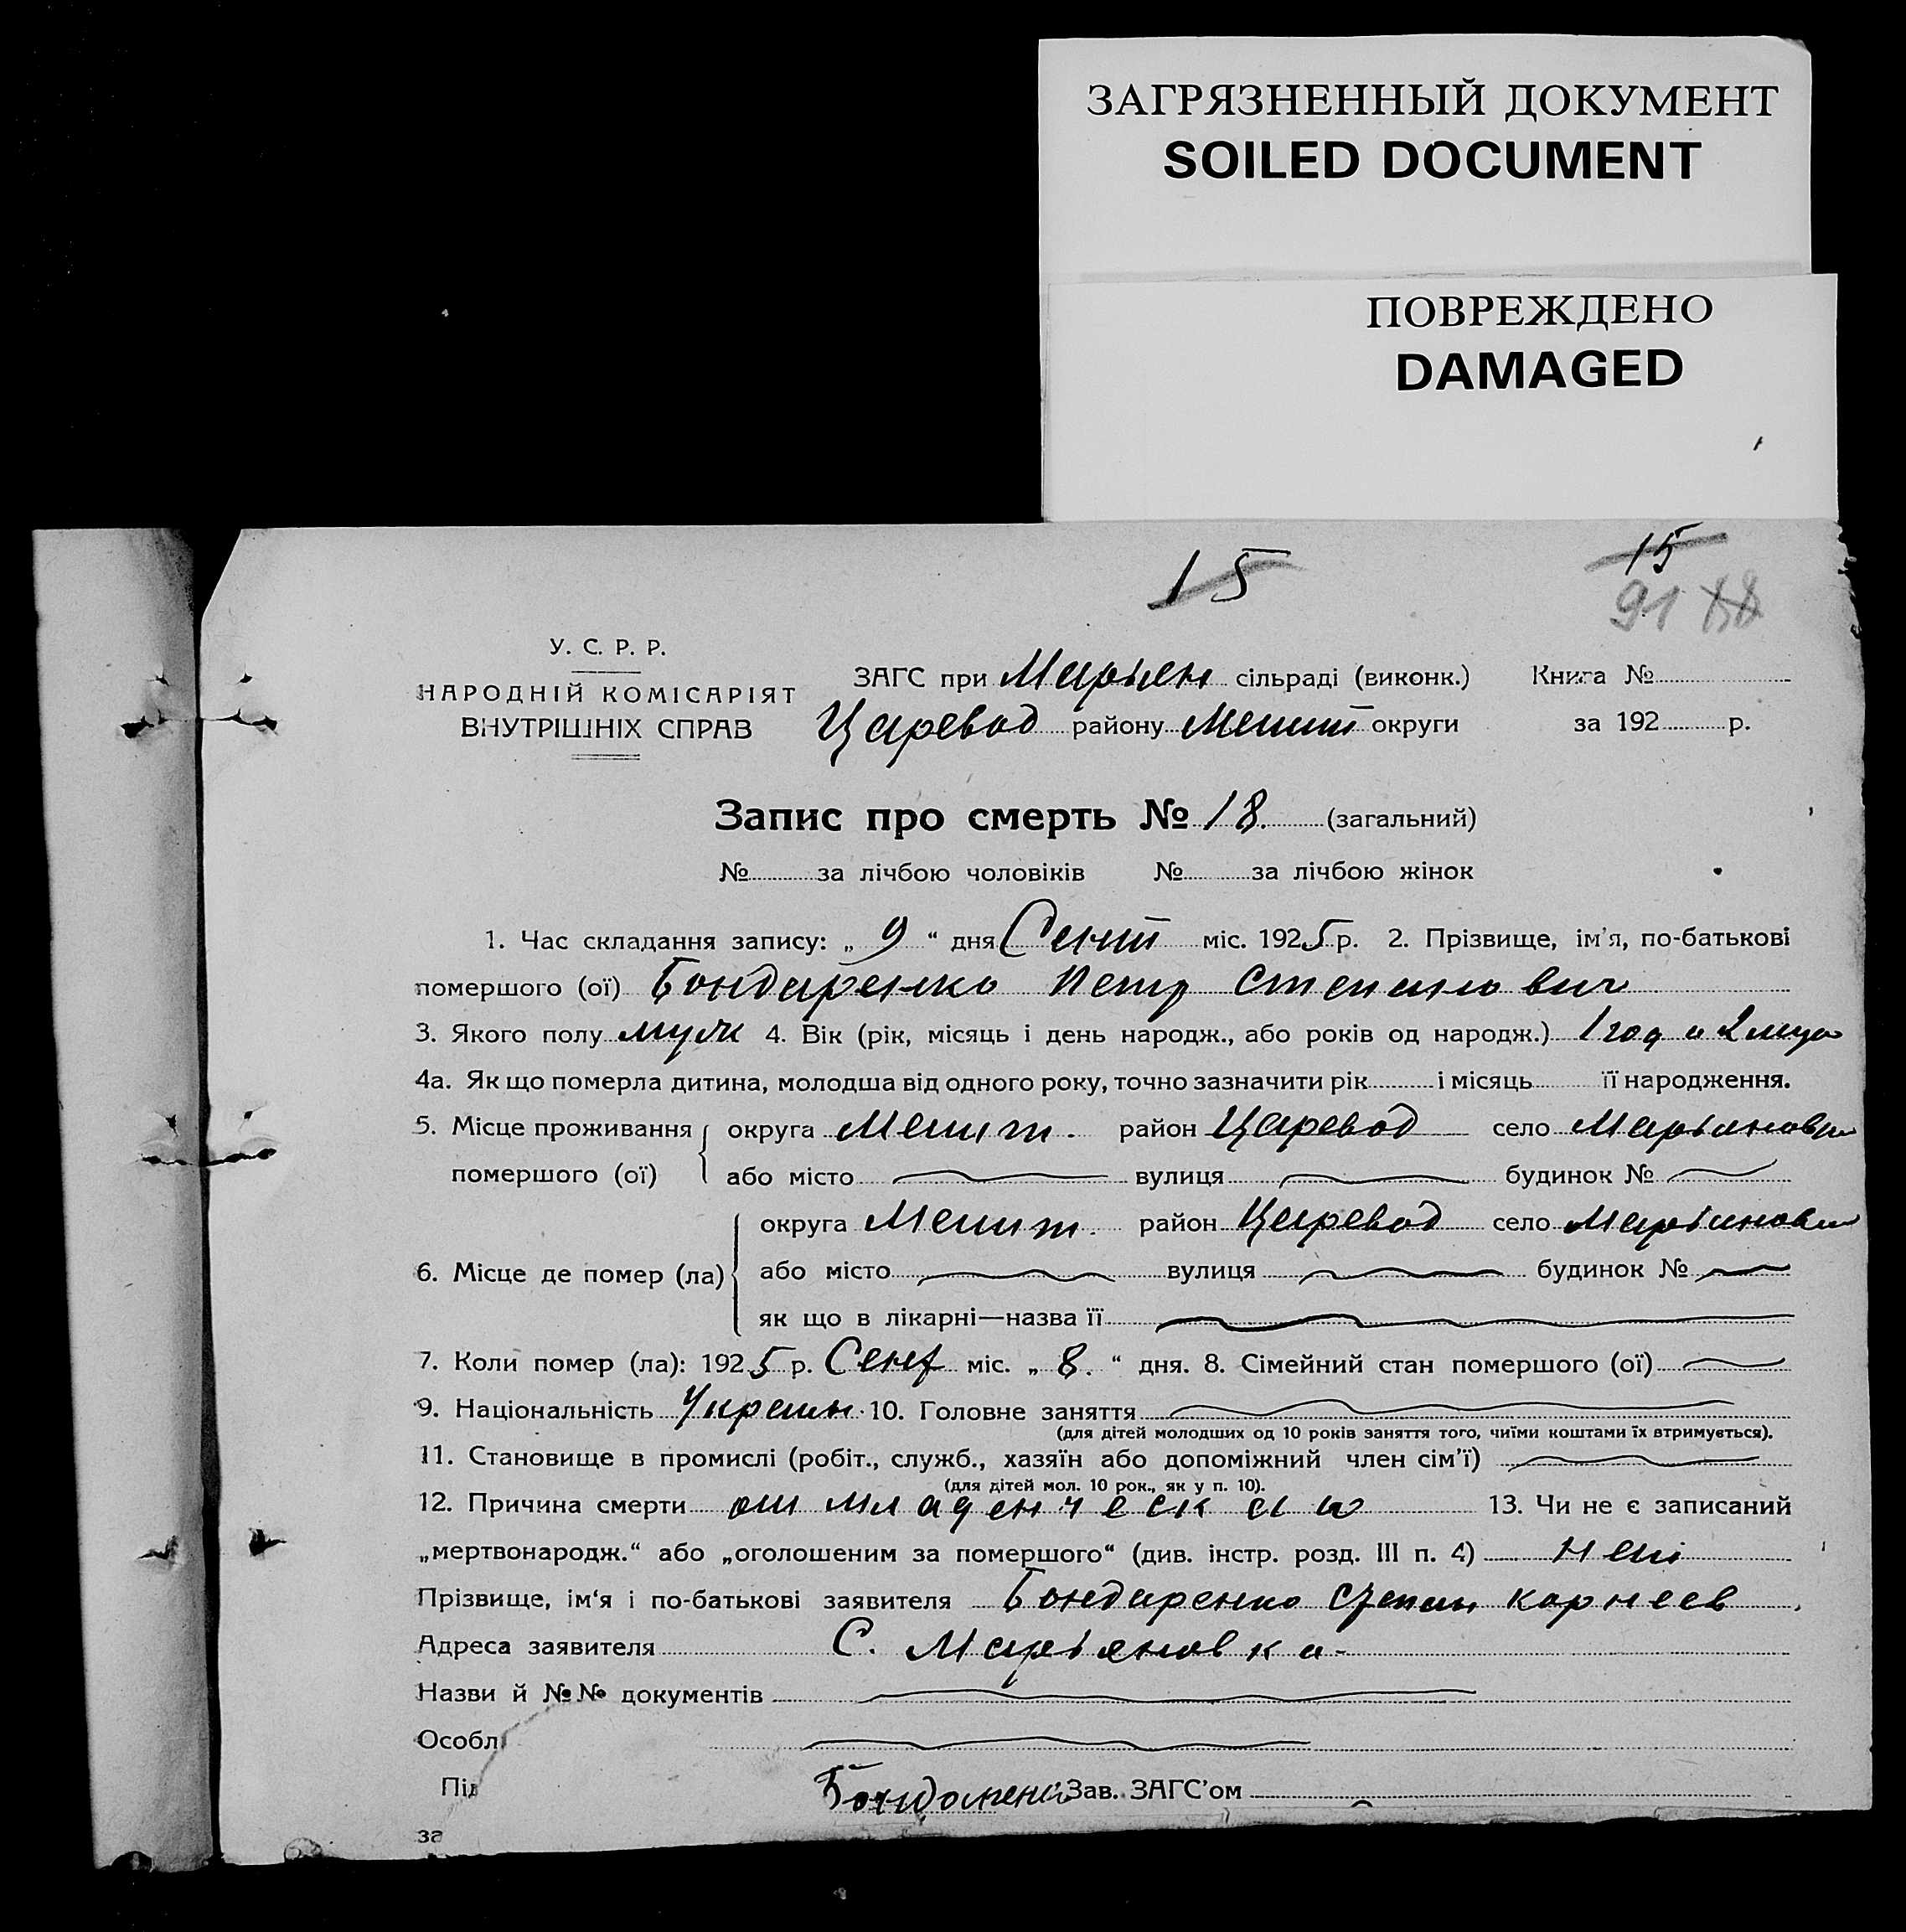 ЗАГРЯЗНЕННЫЙ ДОКУМЕНТ
SOILED DOCUMENT
ПОВРЕЖДЕНО
DAMAGED
15
15
91 88
У. С. Р. Р.
НАРОДНІЙ КОМІСАРІЯТ
ВНУТРІШНІХ СПРАВ
ЗАГС при Марьян сільраді (виконк.) Книга №
Царевод району Мелит округи за 192 р.
Запис про смерть № 18. (загальний)
№ за лічбою чоловіків № за лічбою жінок
1. Час складання запису: „ 9 “ дня Сент міс. 1925 р. 2. Прізвище, ім'я, по-батькові
помершого (ої) Бондаренко Петр Степанович
3. Якого полу муж 4. Вік (рік, місяць і день народж., або років од народж.) 1 год и 2
4а. Як що померла дитина, молодша від одного року, точно зазначити рік і місяць її народження.
5. Місце проживання округа Мелит. район Царевод село Марьяновка
помершого (ої) або місто вулиця будинок №
округа Мелит. район Царевод село Марьяновка
6. Місце де помер (ла) або місто вулиця будинок №
як що в лікарні—назва її
7. Коли помер (ла): 1925 р. Сент міс. „ 8. “ дня. 8. Сімейний стан помершого (ої)
9. Національність Украин 10. Головне заняття
(для дітей молодших од 10 років заняття того, чиїми коштами їх втримується).
11. Становище в промислі (робіт., служб., хазяїн або допоміжний член сім'ї)
(для дітей мол. 10 рок., як у п. 10).
12. Причина смерти от младенческаи 13. Чи не є записаний
„мертвонародж.“ або „оголошеним за помершого“ (див. інстр. розд. III п. 4) нет
Прізвище, ім'я і по-батькові заявителя Бондаренко Степан Корнеев
Адреса заявителя С. Марьяновка
Назви й №№ документів
Особл
Під Зав. ЗАГС'ом
за